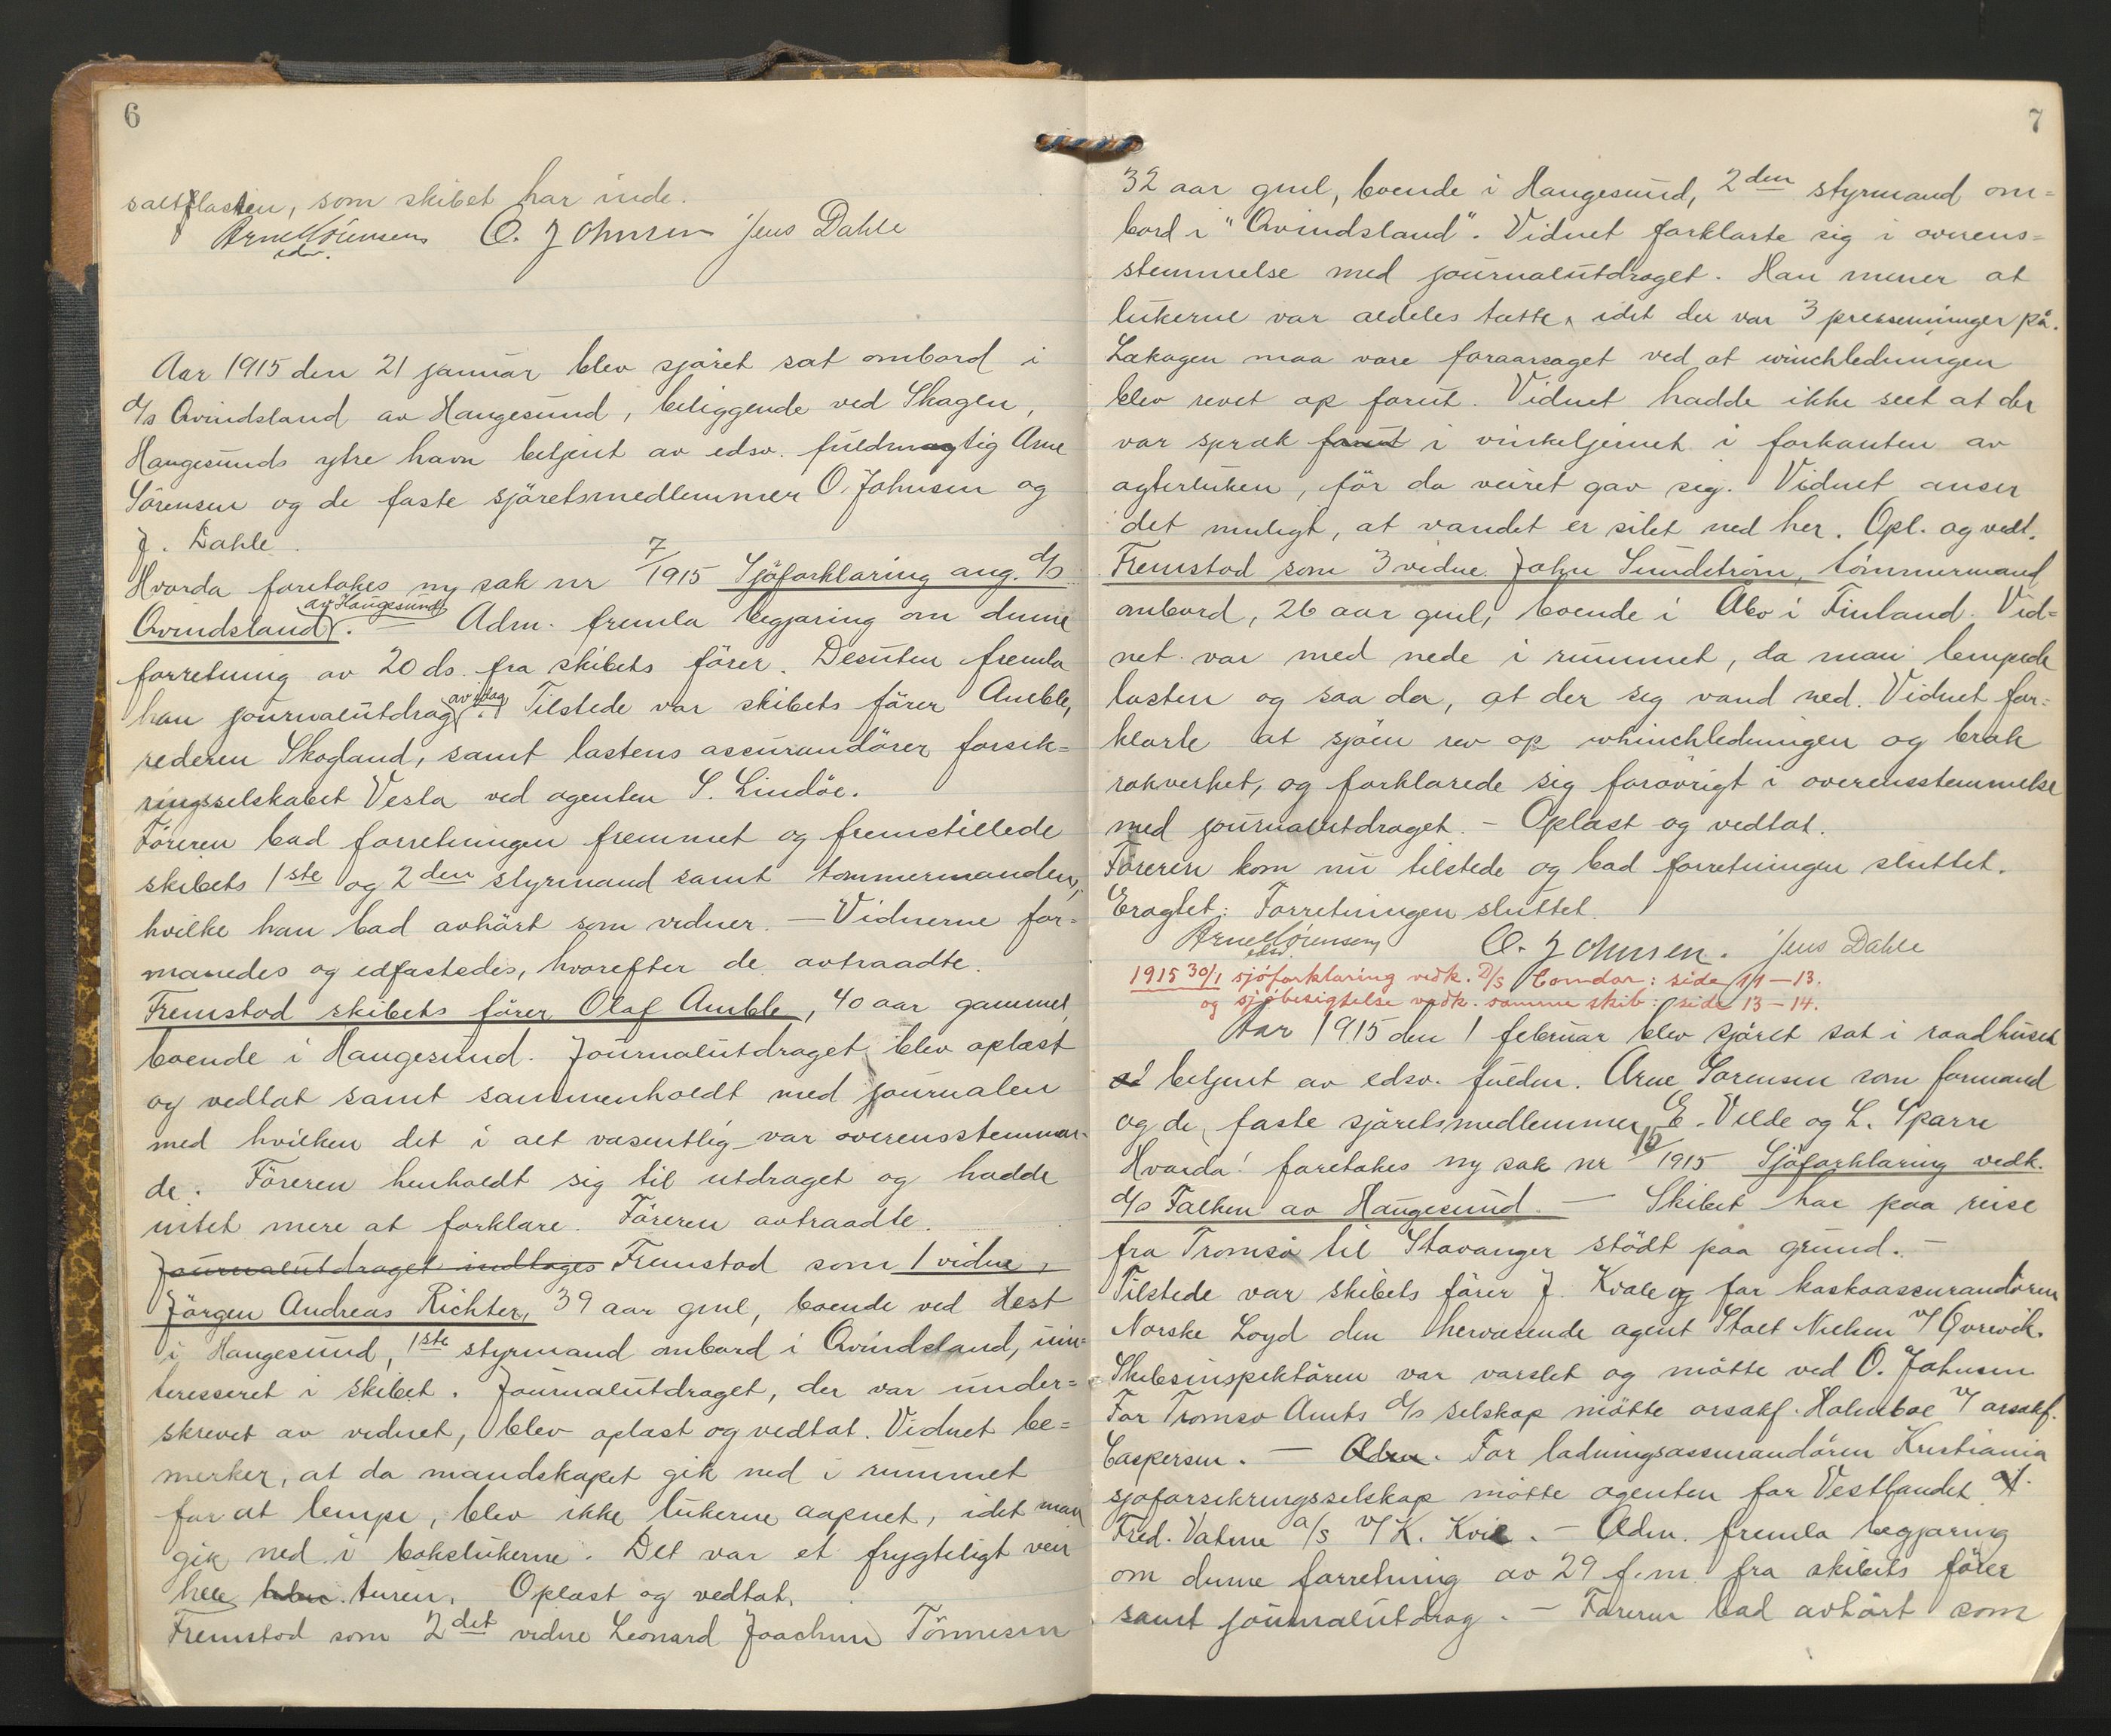 6
saltlasten, som skibet har inde.
Arne Sörensen O. Johnsen Jens Dahle
edsv.
Aar 1915 den 21 januar blev sjöret sat ombord i
d/s Qvindsland av Haugesund, beliggende ved Skagen,
Haugesunds ytre havn betjent av edsv. fuldmægtig Arne
Sörensen og de faste sjöretsmedlemmer O. Johnsen og
J. Dahle.
Hvorda foretokes ny sak nr 7/1915 Sjöforklaring ang. d/s
Qvindsland av Haugesund. — Adm. fremla begjæring om denne
forretning av 20 ds. fra skibets förer. Desuten fremla
han journalutdrag av idag. Tilstede var skibets förer Amble,
rederen Skogland, samt lastens assurandörer forsik=
ringsselskabet Vesta ved agenten S. Lindöe.
Föreren bad forretningen fremmet og fremstillede
skibets 1ste og 2den styrmand samt tömmermanden,
hvilke han bad avhört som vidner. — Vidnerne for=
manedes og edfæstedes, hvorefter de avtraadte.
Fremstod skibets förer Olaf Amble, 40 aar gammel,
boende i Haugesund. Journalutdraget blev oplæst
og vedtat samt sammenholdt med journalen
med hvilken det i alt væsentlig var overensstemmen-
de. Föreren henholdt sig til utdraget og hadde
intet mere at forklare. Föreren avtraadte.
Journalutdraget indtages Fremstod som 1 vidne,
Jörgen Andreas Richter, 39 aar gml, boende ved Hest
i Haugesund, 1ste styrmand ombord i Qvindsland, uin=
teresseret i skibet. Journalutdraget, der var under=
skrevet av vidnet, blev oplæst og vedtat. Vidnet be=
merker, at da mandskapet gik ned i rummet
for at lempe, blev ikke lukerne aapnet, idet man
gik ned i bokslukerne. Det var et frygteligt veir
hele turen. Oplæst og vedtat.
Fremstod som 2det vidne Leonard Joachim Tönnesen
7
32 aar gml, boende i Haugesund, 2den styrmand om=
bord i "Qvindsland". Vidnet forklarte sig i overens=
stemmelse med journalutdraget. Han mener at
lukerne var aldeles tætte, idet der var 3 presenninger på.
Lækagen maa være foraarsaget ved at winchledningen
blev revet op forut. Vidnet hadde ikke seet at der
var spræk forut i vinkeljernet i forkanten av
agterluken, för da veiret gav sig. Vidnet anser
det muligt, at vandet er silet ned her. Opl. og vedt.
Fremstod som 3 vidne John Sundström, tömmermand
ombord, 26 aar gml, boende i Åbo i Finland. Vid=
net var med nede i rummet, da man lempede
lasten og saa da, at der seg vand ned. Vidnet for=
klarte at sjöen rev op whinchledningen og bræk
rækverket, og forklarede sig forövrigt i overensstemmelse
med journalutdraget. — Oplæst og vedtat.
Föreren kom nu tilstede og bad forretningen sluttet.
Eragtet: Forretningen sluttet.
Arne Sörensen O. Johnsen. Jens Dahle
edsv.
1915 30/1 sjöforklaring vedk. D/S Condor: side 11—13.
og sjöbesigtelse vedk. samme skib: side 13—14.
Aar 1915 den 1 februar blev sjöret sat i raadhuset
betjent av edsv. fuldm. Arne Sörensen som formand
og de faste sjöretsmedlemmer E. Velde og L. Sparre
Hvorda! foretokes ny sak nr /1915 Sjöforklaring vedk.
d/s Falken av Haugesund. — Skibet har paa reise
fra Tromsö til Stavanger stödt paa grund. —
Tilstede var skibets förer J. Kvale og for kaskoassurandören
Norske Loyd den herværende agent Stolt Nielsen v/ Qvrevik.
Skibsinspektören var varslet og mötte ved O. Johnsen
For Tromsö Amts d/s selskap mötte orsakf. Holmboe v/ orsakf.
Caspersen. — Adm. For ladningsassurandören Kristiania
sjöforsikringsselskap mötte agenten for Vestlandet
Fred. Vatne a/s v/ K. Kvie. — Adm. fremla begjæring
om denne forretning av 29 f.m. fra skibets förer
samt journalutdrag. — Föreren bad avhört som